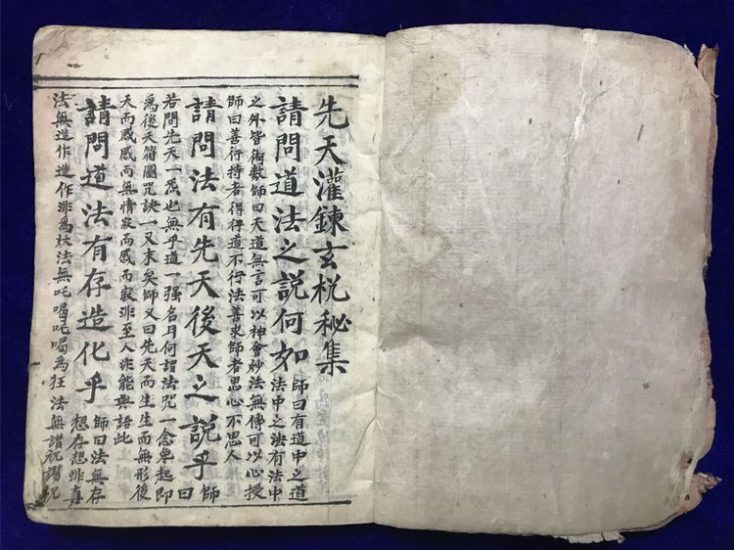 先天灌鍊玄杌秘集
請問道法之說何如師曰有道中之道
法中之法有法中
之外皆術教師曰天道無言可以神會妙法無傳可以心授
師曰善行持者得得道不行法善求師者思心不思人
請問法有先天後天之說乎師曰
若問先天一炁也無乎道一强名月何謂法咒一念起即
爲後天符圖咒訣一又末矣師又曰先天而生生而無形後
天而感感而無情寂而感而寂非至人非能與語此
請問道法有存造化乎師曰法無存
想存想非真
法無造作造作非爲妖法無吒喝吒喝爲狂法無